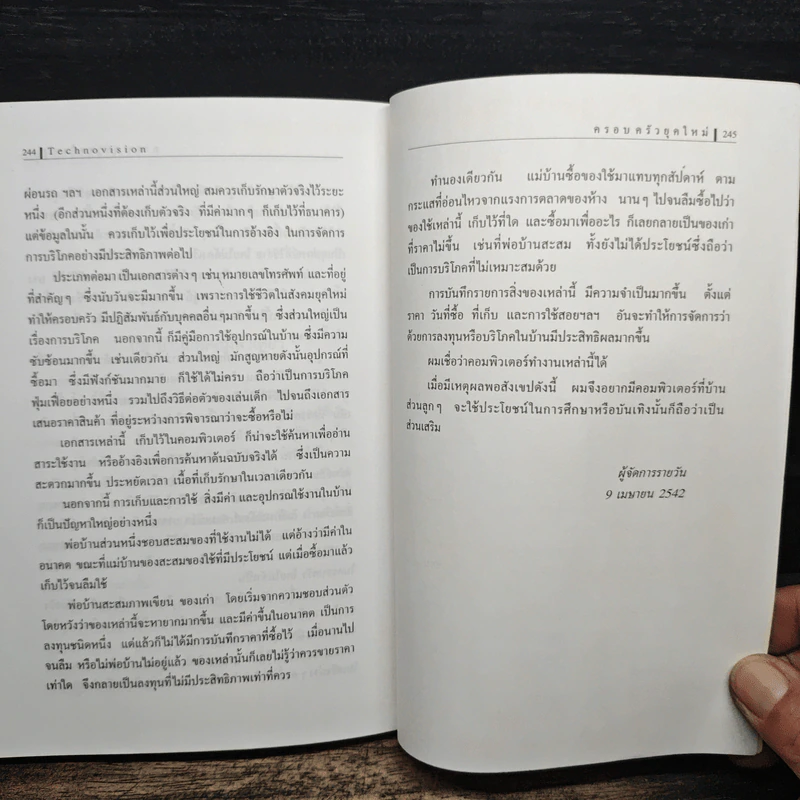 244 Technovision
ผ่อนรถ ฯลฯ เอกสารเหล่านี้ส่วนใหญ่ สมควรเก็บรักษาตัวจริงไว้ระยะ
หนึ่ง (อีกส่วนหนึ่งที่ต้องเก็บตัวจริง ที่มีค่ามากๆ ก็เก็บไว้ที่ธนาคาร)
แต่ข้อมูลในนั้น ควรเก็บไว้เพื่อประโยชน์ในการอ้างอิง ในการจัดการ
การบริโภคอย่างมีประสิทธิภาพต่อไป
ประเภทต่อมา เป็นเอกสารต่างๆ เช่น หมายเลขโทรศัพท์ และที่อยู่
ที่สำคัญๆ ซึ่งนับวันจะมีมากขึ้น เพราะการใช้ชีวิตในสังคมยุคใหม่
ทำให้ครอบครัว มีปฏิสัมพันธ์กับบุคคลอื่นๆมากขึ้นๆ ซึ่งส่วนใหญ่เป็น
เรื่องการบริโภค นอกจากนี้ ก็มีคู่มือการใช้อุปกรณ์ในบ้าน ซึ่งมีความ
ซับซ้อนมากขึ้น เช่นเดียวกัน ส่วนใหญ่ มักสูญหายดังนั้นอุปกรณ์ที่
ซื้อมา ซึ่งมีฟังก์ชันมากมาย ก็ใช้ได้ไม่ครบ ถือว่าเป็นการบริโภค
ฟุ่มเฟือยอย่างหนึ่ง รวมไปถึงวิธีต่อตัวของเล่นเด็ก ไปจนถึงเอกสาร
เสนอราคาสินค้า ที่อยู่ระหว่างการพิจารณาว่าจะซื้อหรือไม่
เอกสารเหล่านี้ เก็บไว้ในคอมพิวเตอร์ ก็น่าจะใช้ค้นหาเพื่ออ่าน
สาระใช้งาน หรืออ้างอิงเพื่อการค้นหาต้นฉบับจริงได้ ซึ่งเป็นความ
สะดวกมากขึ้น ประหยัดเวลา เนื้อที่เก็บรักษาในเวลาเดียวกัน
นอกจากนี้ การเก็บและการใช้ สิ่งมีค่า และอุปกรณ์ใช้งานในบ้าน
ก็เป็นปัญหาใหญ่อย่างหนึ่ง
พ่อบ้านส่วนหนึ่งชอบสะสมของที่ใช้งานไม่ได้ แต่อ้างว่ามีค่าใน
อนาคต ขณะที่แม่บ้านของสะสมของใช้ที่มีประโยชน์ แต่เมื่อซื้อมาแล้ว
เก็บไว้จนลืมใช้
พ่อบ้านสะสมภาพเขียน ของเก่า โดยเริ่มจากความชอบส่วนตัว
โดยหวังว่าของเหล่านี้จะหายากมากขึ้น และมีค่าขึ้นในอนาคต เป็นการ
ลงทุนชนิดหนึ่ง แต่แล้วก็ไม่ได้มีการบันทึกราคาที่ซื้อไว้ เมื่อนานไป
จนลืม หรือไม่พ่อบ้านไม่อยู่แล้ว ของเหล่านั้นก็เลยไม่รู้ว่าควรขายราคา
เท่าใด จึงกลายเป็นลงทุนที่ไม่มีประสิทธิภาพเท่าที่ควร
ครอบครัวยุคใหม่ 245
ทำนองเดียวกัน แม่บ้านซื้อของใช้มาแทบทุกสัปดาห์ ตาม
กระแสที่อ่อนไหวจากแรงการตลาดของห้าง นานๆ ไปจนลืมซื้อไปว่า
ของใช้เหล่านี้ เก็บไว้ที่ใด และซื้อมาเพื่ออะไร ก็เลยกลายเป็นของเก่า
ที่ราคาไม่ขึ้น เช่นที่พ่อบ้านสะสม ทั้งยังไม่ได้ประโยชน์ซึ่งถือว่า
เป็นการบริโภคที่ไม่เหมาะสมด้วย
การบันทึกรายการสิ่งของเหล่านี้ มีความจำเป็นมากขึ้น ตั้งแต่
ราคา วันที่ซื้อ ที่เก็บ และการใช้สอยฯลฯ อันจะทำให้การจัดการว่า
ด้วยการลงทุนหรือบริโภคในบ้านมีประสิทธิผลมากขึ้น
ผมเชื่อว่าคอมพิวเตอร์ทำงานเหล่านี้ได้
เมื่อมีเหตุผลพอสังเขปดังนี้ ผมจึงอยากมีคอมพิวเตอร์ที่บ้าน
ส่วนลูกๆ จะใช้ประโยชน์ในการศึกษาหรือบันเทิงนั้นก็ถือว่าเป็น
ส่วนเสริม
ผู้จัดการรายวัน
9 เมษายน 2542